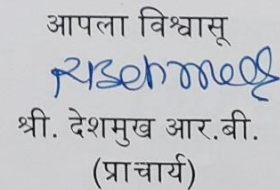 आपला विश्वासू
श्री. देशमुख आर.बी.
(प्राचार्य)